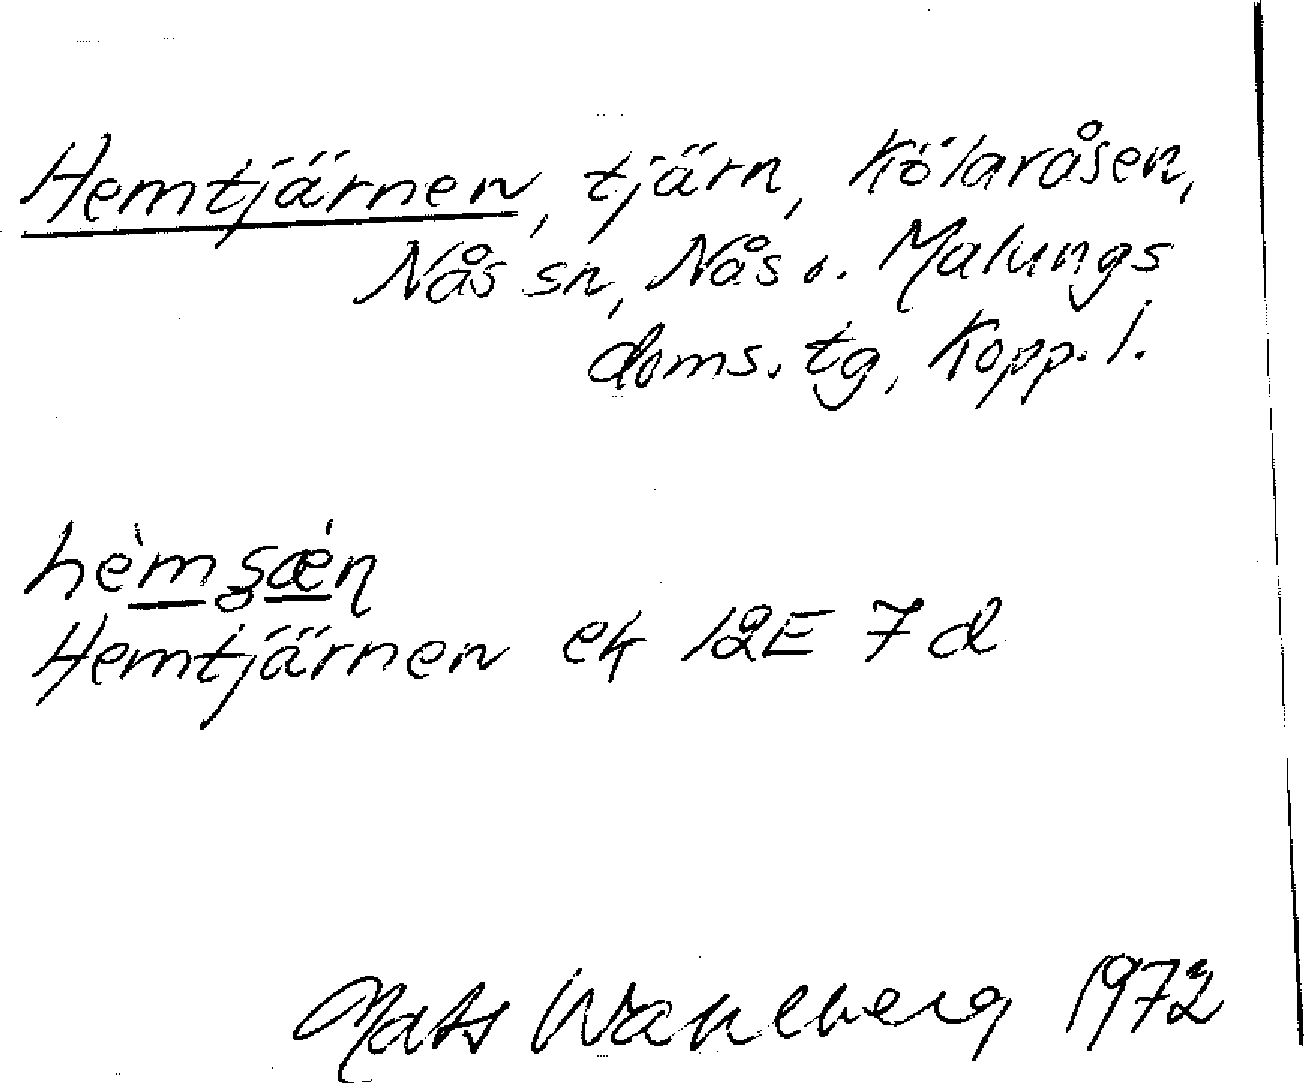 Hemtjärnen, tjärn, Kölaråsen,
Nås sn, Nås o. Malungs
doms. tg, Kopp. l.
Hemtjärnen ek 12E 7d
Mats Wahlberg 1972